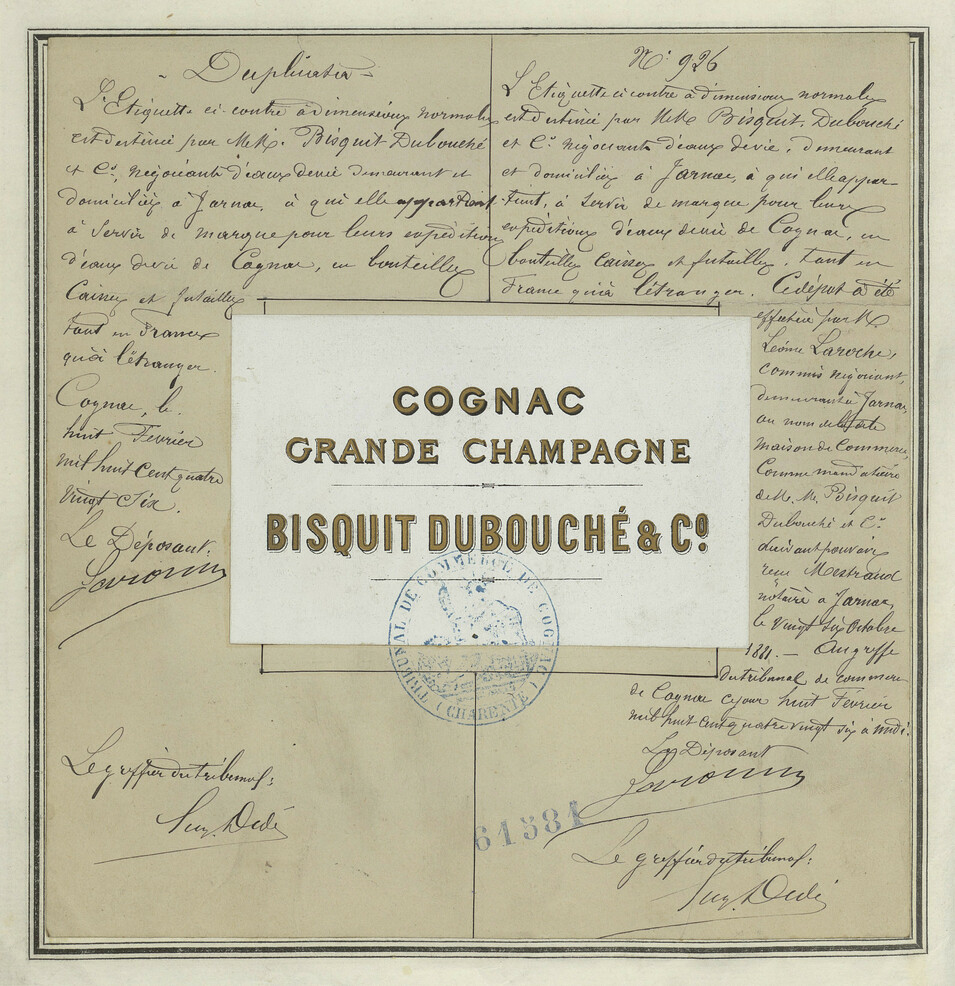 Duplicata
L'Etiquette ci-contre à dimensions normales
est destinée par M.M. Bisquit-Dubouché
et Cie, négociants d'eaux de vie demeurant et
domiciliés à Jarnac, à qui elle appartient
à servir de marque pour leurs expéditions
d'eaux de vie de Cognac, en bouteilles
Caisses et futailles
tant en France
qu'à l'étranger.
Cognac, le
huit Février
mil huit cent quatre
vingt Six.
Le Déposant.
Le greffier du tribunal:
N° 926
L'Etiquette ci contre à dimensions normales
est destinée par M.M. Bisquit, Dubouché
et Cie négociants d'eaux de vie, demeurant
et domiciliés à Jarnac, à qui elle appar-
tient, à servir de marque pour leurs
expéditions d'eaux de vie de Cognac, en
bouteilles caisses et futailles, tant en
France qu'à l'étranger. Ce dépôt a été
effectué par M.
Léonce Laroche,
commis négociant,
demeurant à Jarnac,
au nom de la dite
maison de Commerce,
Comme mandataire
de M. M. Bisquit
Dubouché et Cie
suivant pouvoir
reçu Mestraud
notaire à Jarnac,
le vingt six Octobre
1881. — Au greffe
du tribunal de commerce
de Cognac ce jour huit Février
mil huit cent quatre vingt six à midi.
Le Déposant
Le greffier du tribunal:
COGNAC
GRANDE CHAMPAGNE
BISQUIT DUBOUCHÉ & Cº
TRIBUNAL DE COMMERCE DE COGNAC
(CHARENTE)
61581